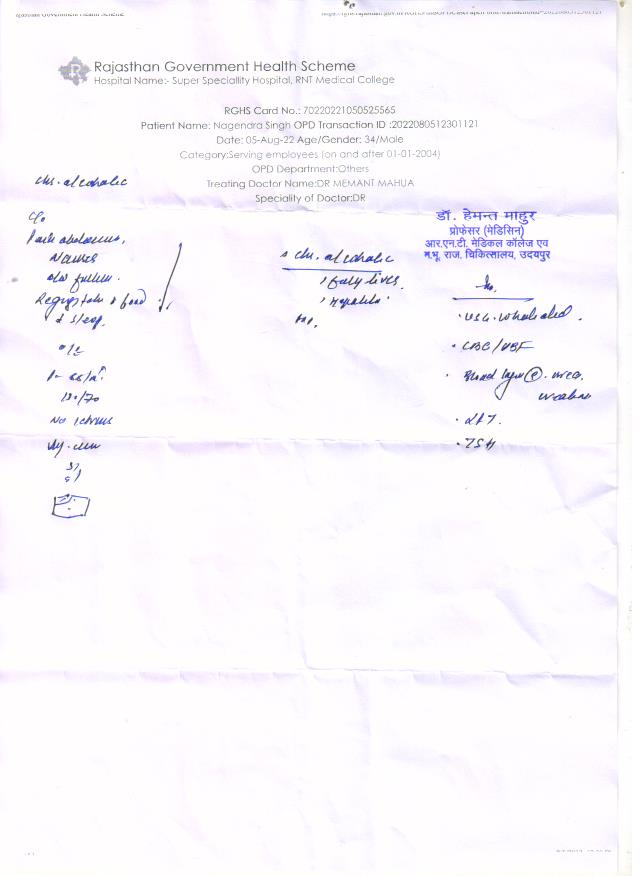 Rajasthan Government Health Scheme
Rajasthan Government Health Scheme
Hospital Name:- Super Speciallity Hospital, RNT Medical College
RGHS Card No.: 70220221050525565
Patient Name: Nagendra Singh OPD Transaction ID :2022080512301121
Date: 05-Aug-22 Age/Gender: 34/Male
Category:Serving employees (on and after 01-01-2004)
OPD Department:Others
Treating Doctor Name:DR MEMANT MAHUA
Speciality of Doctor:DR
chr. alcoholic
डॉ. हेमन्त माहुर
प्रोफेसर (मेडिसिन)
आर.एन.टी. मेडिकल कॉलेज एव
म.भू. राज. चिकित्सालय, उदयपुर
C/o
Pain abdomen,
Nausea
& sleep.
chr. alcoholic
Fatty liver.
Hepatitis
USG. whole abd.
CBC/PBF
LFT.
TSH
O/E
130/70
No icterus